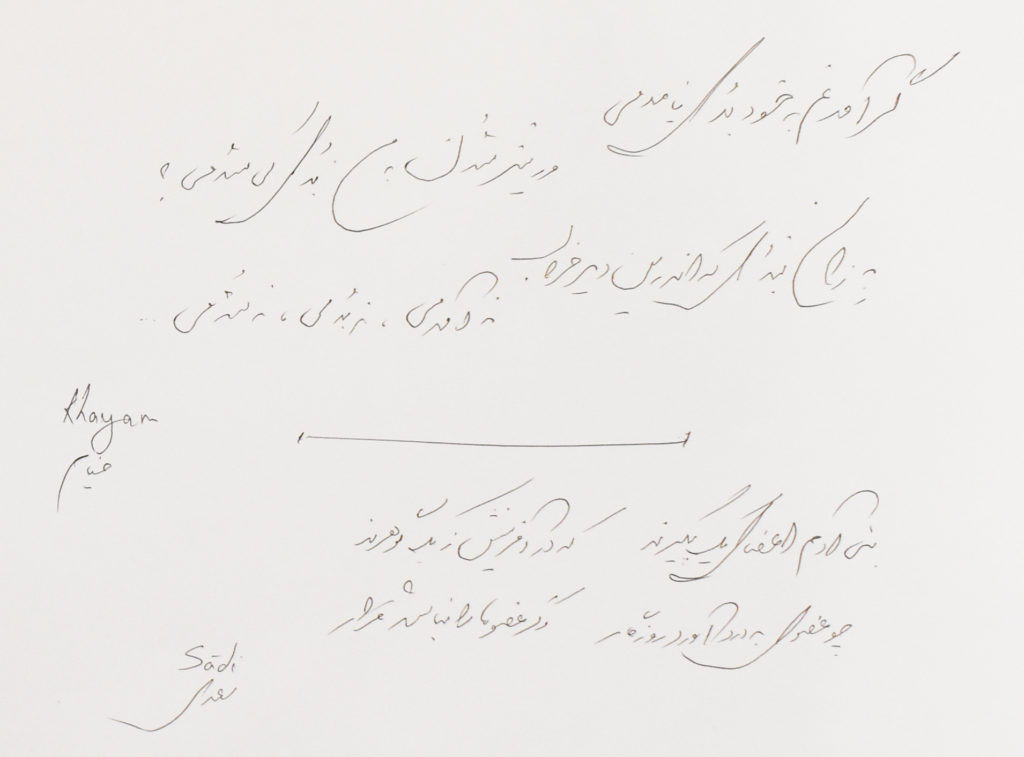 گر آمدنم به خود بدی نامدمی
ور نیز شدن به من بدی کی شدمی؟
به زان نبدی که اندرین دیر خراب
نه آمدمی، نه بدمی، نه شدمی ...
Khayam
خیام
بنی آدم اعضای یکدیگرند که در آفرینش ز یک گوهرند
چو عضوی به درد آورد روزگار دگر عضوها را نماند قرار
Sādi
سعدی